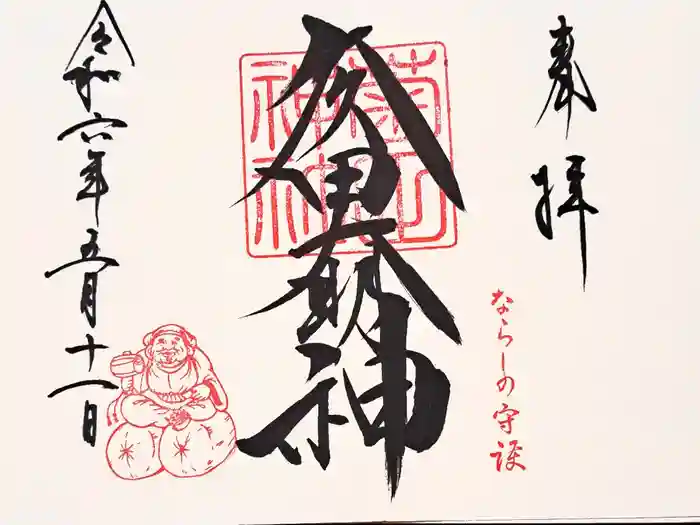 奉拝
ならしの守護
久々田大明神
令和六年五月十一日